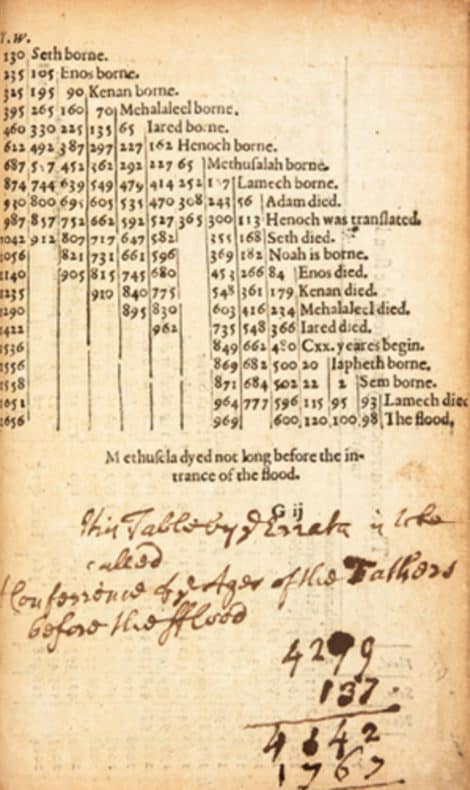 130 Seth borne.
235 105 Enos borne.
325 195 90 Kenan borne.
395 265 160 70 Mehalaleel borne.
460 330 225 135 65 Iared borne.
622 492 387 297 227 162 Henoch borne.
687 557 452 362 292 227 65 Methusalah borne.
874 744 639 549 479 414 252 187 Lamech borne.
930 800 695 605 535 470 308 243 56 Adam died.
987 857 752 662 592 527 365 300 113 Henoch was translated.
1042 912 807 717 647 582 355 168 Seth died.
1056 821 731 661 596 369 182 Noah is borne.
1140 905 815 745 680 453 266 84 Enos died.
1235 910 840 775 548 361 179 Kenan died.
1290 895 830 603 416 234 Mehalaleel died.
1422 962 735 548 366 Iared died.
1536 849 662 480 Cxx. yeares begin.
1556 869 682 500 20 Iapheth borne.
1558 871 684 502 22 2 Sem borne.
1651 964 777 596 115 95 93 Lamech died
1656 969 600, 120, 100, 98 The flood.
Methusela dyed not long before the in-
trance of the flood.
G ij
This Table by ye Errata is to be
called
Conferrence of ye Ages of the Fathers
before the fflood
137
1767